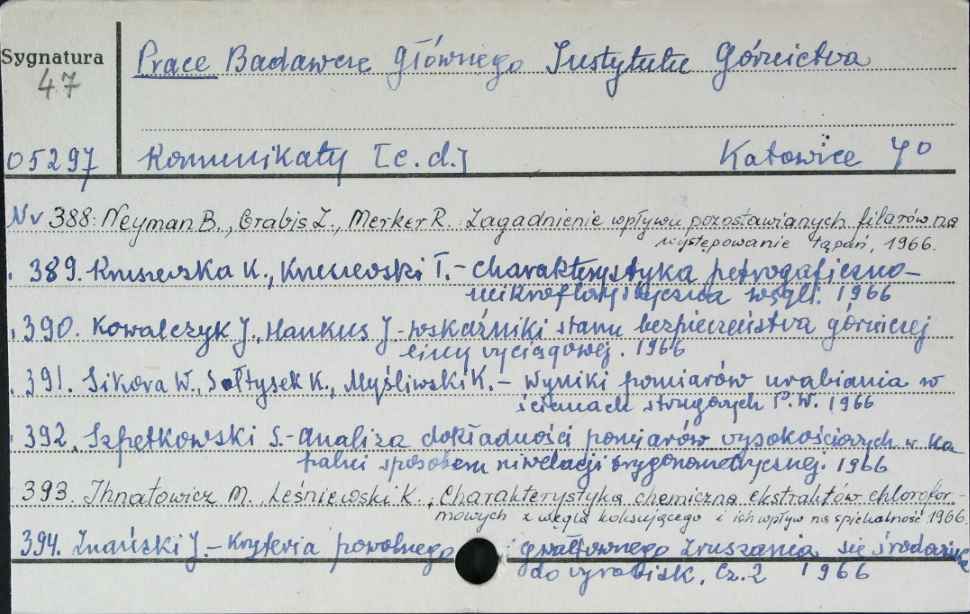 Sygnatura
47
Prace Badawcze Głównego Instytutu Górnictwa
05297
Komunikaty [c.d.] Katowice 4°
Nr 388: Neyman B., Grabis Z., Merker R. Zagadnienie wpływu pozostawianych filarów na
występowanie tąpań, 1966.
389. Kruszewska K., T. - Charakterystyka petrograficzno-
węgl. 1966
390. Kowalczyk J., Hankus J. - wskaźniki stanu bezpieczeństwa górniczej
liny wyciągowej. 1966
391. Sikora W., Sołtysek K., Myśliwski K. - Wyniki pomiarów urabiania w
ścianach strugowych P.W. 1966
392. Szpetkowski S. - Analiza dokładności pomiarów wysokościowych w ko
palni sposobem niwelacji trygonometrycznej. 1966
393. Ihnatowicz M. Leśniewski K., Charakterystyka chemiczna ekstraktów chlorofor-
mowych z węgla koksującego i ich wpływ na spiekalność 1966.
394. Znański J. - Kryteria powolnego gwałtownego zruszania się środowisk
do wyrobisk, cz. 2 1966